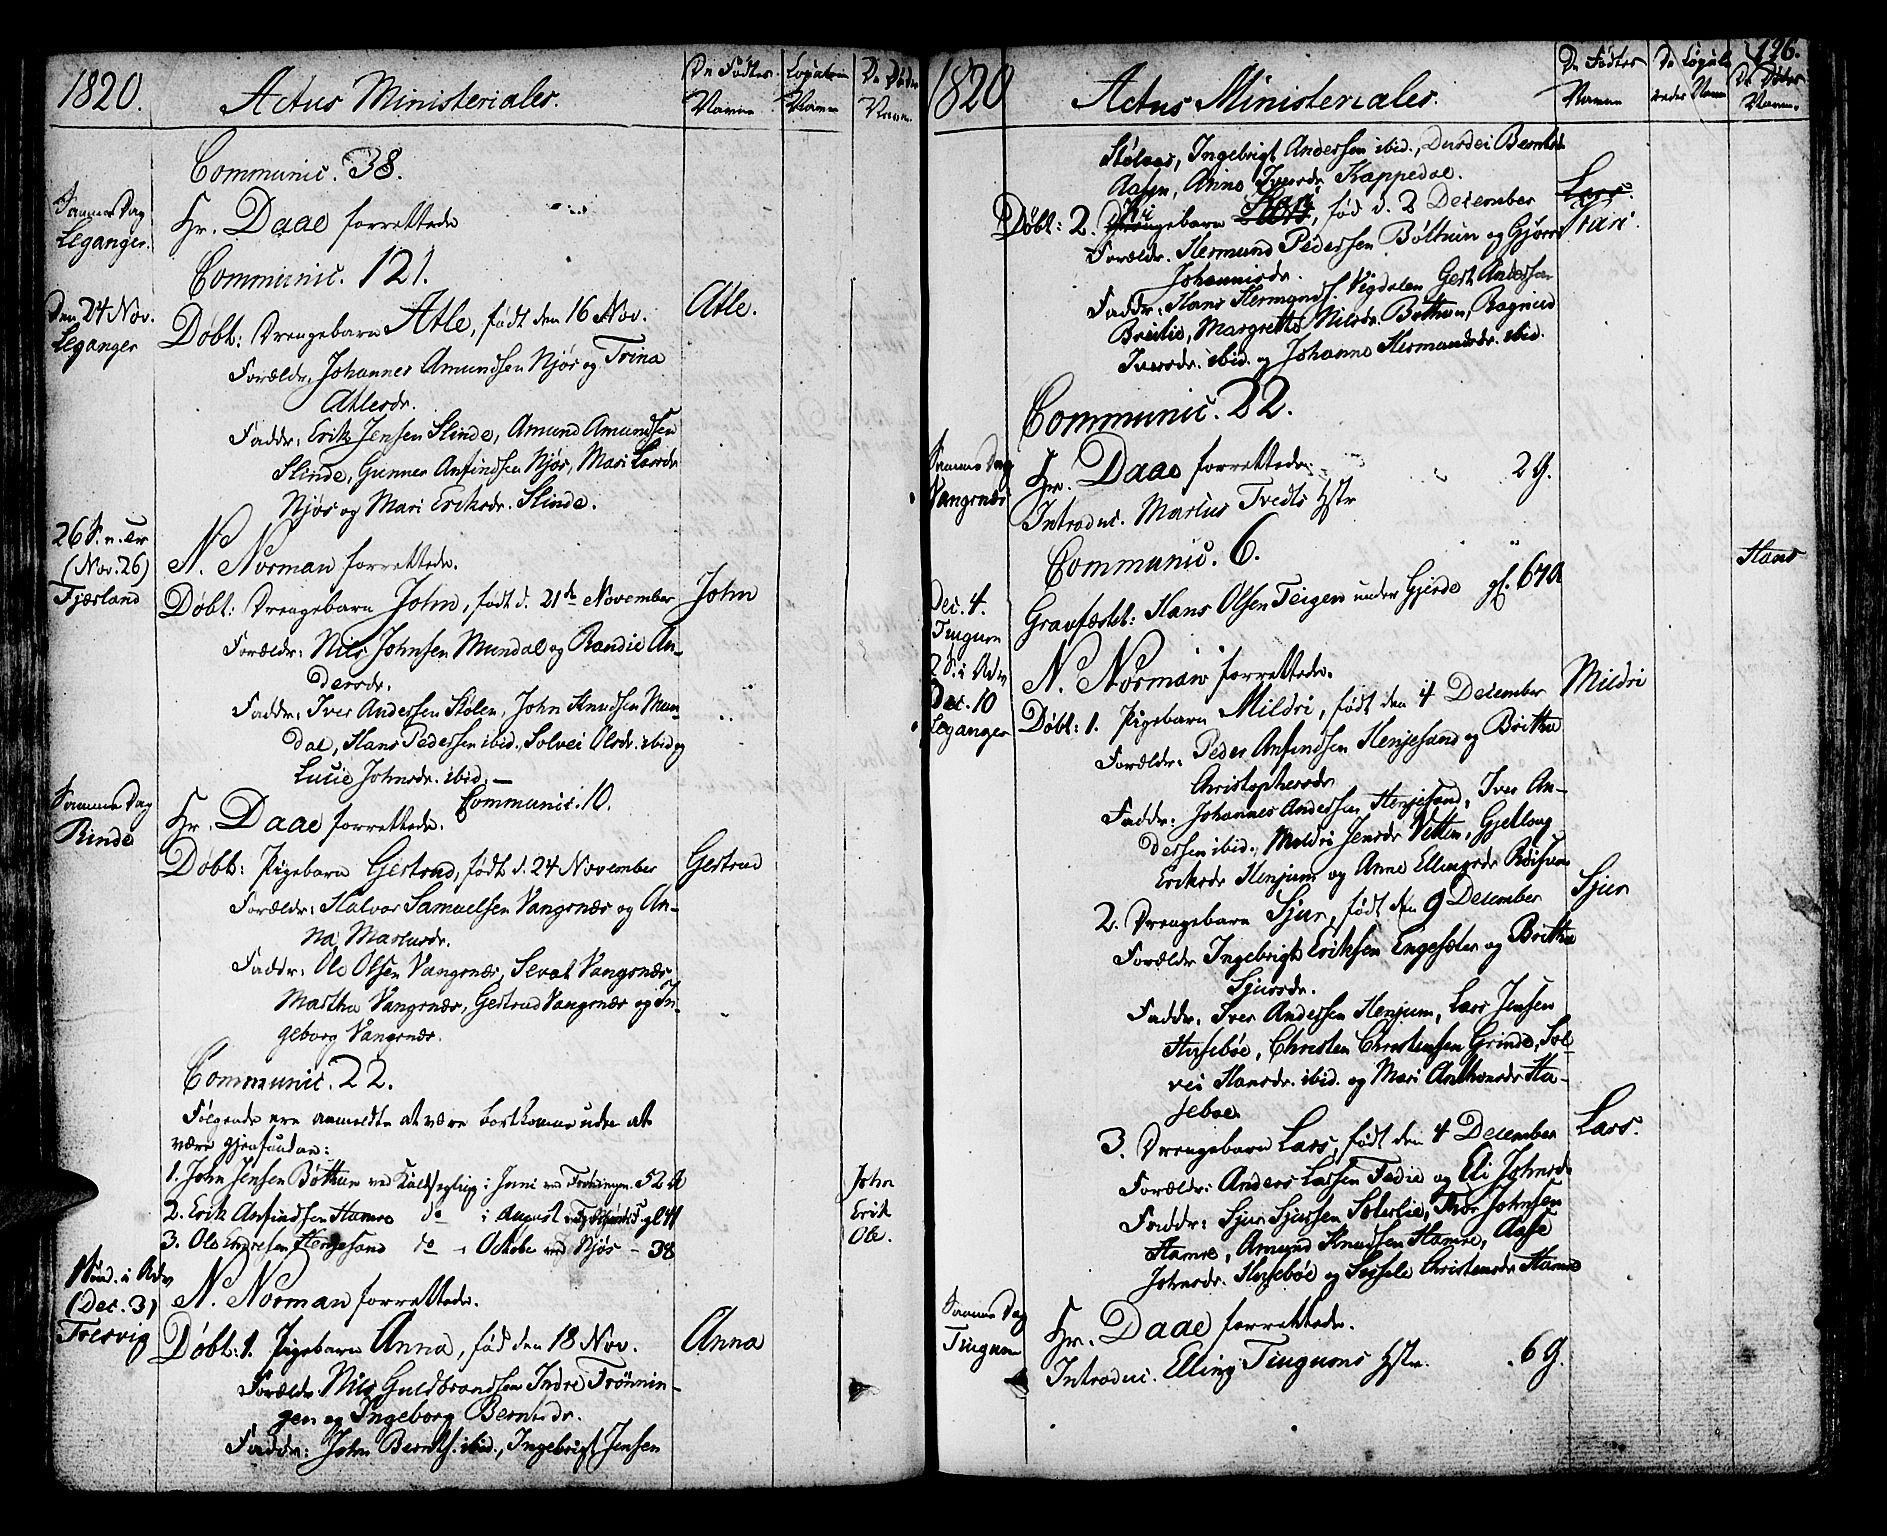 1820.
Actus Ministeriales.
De Fødtes Navne
Copuleredes Navne
De Dødes Navne
Communic. 38.
Samme Dag
Leganger.
Hr. Daae forrettede
Communic. 121.
Den 24 Nov.
Leganger
Døbt: Drengebarn Atle, født den 16 Nov.
Atle.
Forældr. Johannes Amundsen Njøs og Trina
Atlesdr.
Faddr: Erik Jensen Slinde, Amund Amundsen
Slinde, Gunner Anfindsen Njøs, Mari Larsdr
Njøs og Mari Eriksdr. Slinde.
26 S. n. Tr
(Nov. 26)
Fjærland
N. Norman forrettede.
Døbt: Drengebarn John, født d. 21de November
John
Forældr: Nils Johnsen Mundal og Randie An-
dersdr.
Faddr: Iver Andersen Stølen, John Knudsen Mun-
dal, Hans Pedersen ibid., Solvei Olsdr. ibid og
Lucie Johnsdr. ibid. —
Communic. 10.
Samme Dag
Rinde
Hr. Daae forrettede.
Døbt: Pigebarn Gertrud, født d. 24 November
Gertrud
Forældr: Halvor Samuelsen Vangsnæs og An-
na Mariusdr.
Faddr: Ole Olsen Vangsnæs, Sevat Vangsnæs
Martha Vangsnæs, Gertrud Vangsnæs og In-
geborg Vangsnæs.
Communic. 22.
Følgende ere anmeldte at være bortkomne uden at
være gjenfundne:
1. John Jensen Bøthun ved Kuldseglig i Juni ved Frønningen. 52 A
John
2. Erik Anfindsen Hamre do i August gl 41
Erik
3. Ole Endresen Henjesand do i Octobr ved Njøs - 38
Ole.
1 Sund. i Adv
(Dec. 3)
Fresvig
N. Norman forrettede.
Døbt: 1. Pigebarn Anna, fød den 18 Nov.
Anna
Forældr. Nils Guldbrandsen Indre Frønnin-
gen og Ingeborg Berntsdr.
Faddr: John Bernts. ibid., Ingebrigt Jensen
1820
Actus Ministeriales.
De Fødtes Navne
De Copulerendes Navne
126.
De Dødes Navne.
Stølnes, Ingebrigt Andersen ibid., Durdei Berntsd.
Aasen, Anna Iversdr. Kappedal.
Døbt: 2. Drengebarn Lars, fød d. 2 December
Lars.
Kari
Forældr. Hermund Pedersen Bøthun og Gjørri
Johannisdr.
Faddr: Hans Hermunds. Vigdalen Gert Andersen
Breilie, Margrethe Nilsdr. Bøthun, Ragnild
Iversdr. ibid. og Johanna Hermundsdr. ibid.
Communic. 22.
Samme Dag
Vangsnæs
Hr. Daae forrettede.
Introduc. Marius Tvedts Hstr
29.
Communic. 6.
Dec. 4.
Tingum
Gravfæstet: Hans Olsen Teigen under Gjerde gl. 67 A
Hans
2 S. i Adv
Dec. 10
Leganger
N. Norman forrettede.
Døbt: 1. Pigebarn Mildri, født den 4 December
Mildri
Forældr: Peder Anfindsen Henjesand og Britha
Christophersdr
Faddr: Johannes Andersen Henjesand, Iver An-
dersen ibid., Mildri Jensdr Vetten, Gjellaug
Eriksdr Henjum og Anne Ellingsdr Røisum
2. Drengebarn Sjur, født den 9 December
Sjur
Forældr Ingebrigt Eriksen Engesæter og Britha
Sjursdr.
Faddr. Iver Andersen Henjum, Lars Jensen
Haseböe, Christen Christensen Grinde, Sol-
vei Hansdr. ibid. og Mari Anthonsdr Ha-
seboe.
3. Drengebarn Lars, født den 4 December
Lars.
Forældr: Anders Larsen Fedie og Eli Johnsdr
Faddr: Sjur Sjursen Sæterlie, Thor Johnsen
Hamre, Amund Knudsen Hamre, Aase
Johnsdr. Haseböe og Sessele Christensdr Hamre
Samme Dag
Tingum
Hr. Daae forrettede.
Introduc. Elling Tingums Hstr.
69.